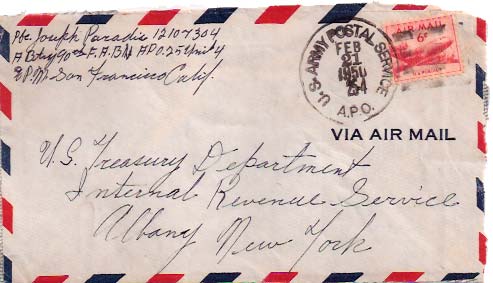 Pfc. Joseph Paradis 12107304
A Btry 90th F.A. BN A.P.O. 25 Unit 4
% P.M. San Francisco Calif.
U.S. ARMY POSTAL SERVICE
FEB
21
1950
A.P.O.
AIR MAIL
6¢
VIA AIR MAIL
U.S. Treasury Department
Internal Revenue Service
Albany New York